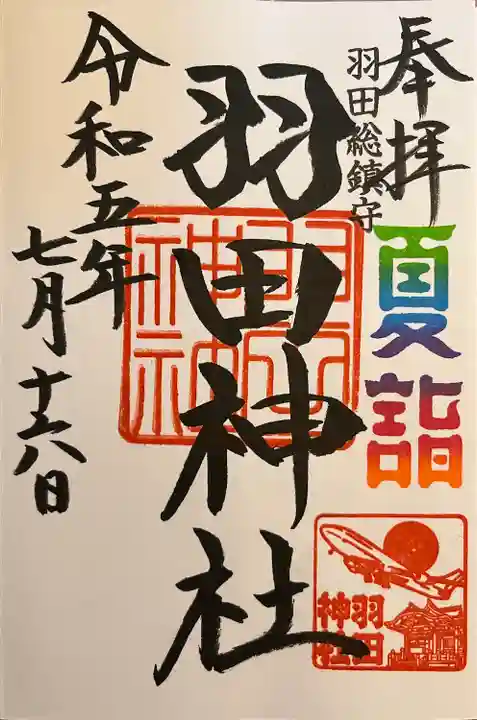 奉拝
羽田総鎮守
夏詣
羽田神社
羽田
神社
羽田
神社
令和五年
七月十六日